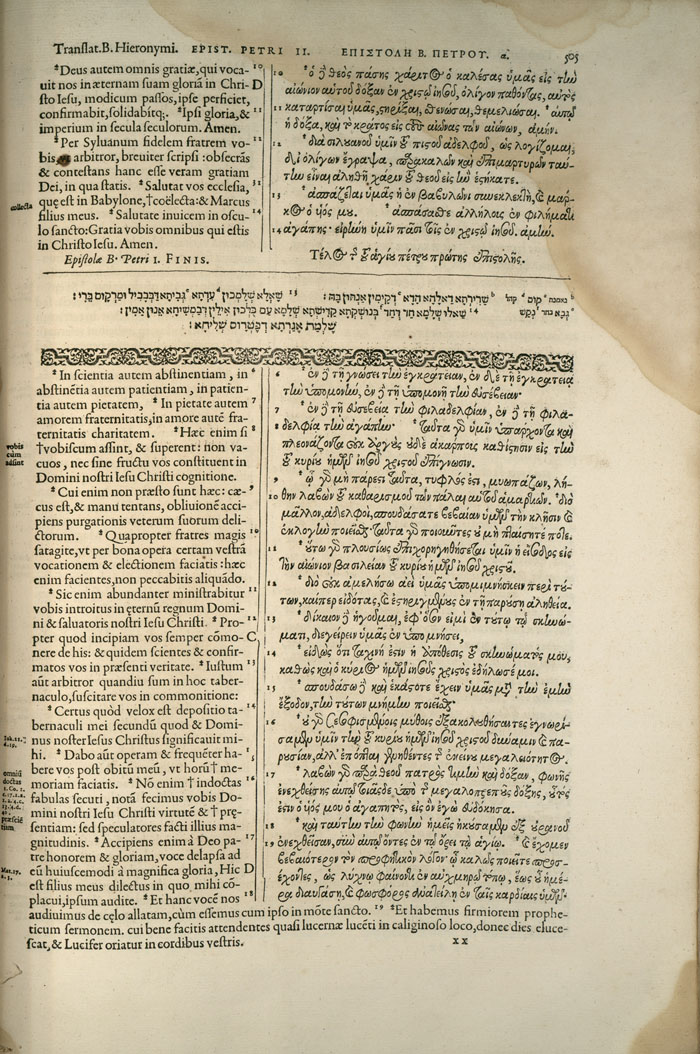 Translat.B. Hieronymi. EPIST. PETRI II. ΕΠΙΣΤΟΛΗ Β. ΠΕΤΡΟΥ. α. 505
*Deus autem omnis gratiæ, qui voca- 10
uit nos in æternam suam gloriã in Chri- D
sto Iesu, modicum passos, ipse perficiet,
confirmabit, solidabitq;. *Ipsi gloria, & 11
imperium in secula seculorum. Amen.
*Per Syluanum fidelem fratrem vo- 12
bis arbitror, breuiter scripsi: obsecrãs
& contestans hanc esse veram gratiam
Dei, in qua statis. *Salutat vos ecclesia, 13
collecta que est in Babylone, †coëlecta: & Marcus
filius meus. *Salutate inuicem in oscu- 14
lo sancto: Gratia vobis omnibus qui estis
in Christo Iesu. Amen.
Epistolæ B. Petri I. FINIS.
10 ὁ ᾖ θεὸς πάσης χάριτος ὁ καλέσας ὑμᾶς εἰς τὴν
αἰώνιον αὐτοῦ δόξαν ἐν χριστῷ ἰησοῦ, ὀλίγον παθόντας, αὐτὸς
11 καταρτίσαι ὑμᾶς, στηρίξαι, σθενώσαι, θεμελιώσαι. *αὐτῷ
ἡ δόξα, καὶ τὸ κράτος εἰς τοὺς αἰῶνας τῶν αἰώνων, ἀμήν.
12 διὰ σιλουανοῦ ὑμῖν τοῦ πιστοῦ ἀδελφοῦ, ὡς λογίζομαι,
δι' ὀλίγων ἔγραψα, παρακαλῶν καὶ ἐπιμαρτυρῶν ταύ-
την εἶναι ἀληθῆ χάριν τοῦ θεοῦ εἰς ἣν ἑστήκατε.
13 ἀσπάζεται ὑμᾶς ἡ ἐν βαβυλῶνι συνεκλεκτὴ, καὶ μάρ-
κος ὁ υἱός μου. *ἀσπάσασθε ἀλλήλους ἐν φιλήματι
14 ἀγάπης· εἰρήνη ὑμῖν πᾶσι τοῖς ἐν χριστῷ ἰησοῦ. ἀμήν.
Τέλος τῆς τοῦ ἁγίου πέτρου πρώτης ἐπιστολῆς.
*In scientia autem abstinentiam, in 6
abstinẽtia autem patientiam, in patien-
tia autem pietatem, *In pietate autem 7
amorem fraternitatis, in amore autẽ fra-
ternitatis charitatem. *Hæc enim si 8
vobis cum adsint †vobiscum assint, & superent: non va-
cuos, nec sine fructu vos constituent in
Domini nostri Iesu Christi cognitione.
*Cui enim non præsto sunt hæc: cæ- 9
cus est, & manu tentans, obliuionẽ acci-
piens purgationis veterum suorum deli-
ctorum. *Quapropter fratres magis 10
satagite, vt per bona opera certam vestrã
vocationem & electionem faciatis: hæc
enim facientes, non peccabitis aliquãdo.
*Sic enim abundanter ministrabitur 11
vobis introitus in ęternũ regnum Domi-
ni & saluatoris nostri Iesu Christi. *Pro- 12
pter quod incipiam vos semper cõmo- C
nere de his: & quidem scientes & confir-
matos vos in præsenti veritate. *Iustum 13
aũt arbitror quandiu sum in hoc taber-
naculo, suscitare vos in commonitione:
*Certus quòd velox est depositio ta- 14
bernaculi mei secundũ quod & Domi-
nus noster Iesus Christus significauit mi-
hi. *Dabo aũt operam & frequẽter ha- 15
bere vos post obitũ meũ, vt horũ† me-
moriam faciatis. *Nõ enim † indoctas 16
fabulas secuti, notã fecimus vobis Do-
mini nostri Iesu Christi virtutẽ & † præ-
sentiam: sed speculatores facti illius ma-
gnitudinis. *Accipiens enim à Deo pa- 17
tre honorem & gloriam, voce delapsa ad
eũ huiuscemodi à magnifica gloria, Hic D
est filius meus dilectus in quo mihi cõ-
placui, ipsum audite. *Et hanc vocẽ nos 18
6 ἐν ᾖ τῇ γνώσει τὴν ἐγκράτειαν, ἐν δὲ τῇ ἐγκρατείᾳ
τὴν ὑπομονὴν, ἐν ᾖ τῇ ὑπομονῇ τὴν εὐσέβειαν·
7 ἐν ᾖ τῇ εὐσεβείᾳ τὴν φιλαδελφίαν, ἐν ᾖ τῇ φιλα-
8 δελφίᾳ τὴν ἀγάπην· *ταῦτα γὰρ ὑμῖν ὑπάρχοντα καὶ
πλεονάζοντα οὐκ ἀργοὺς οὐδὲ ἀκάρπους καθίστησιν εἰς τὴν
τοῦ κυρίου ἡμῶν ἰησοῦ χριστοῦ ἐπίγνωσιν.
9 ᾧ γὰρ μὴ πάρεστι ταῦτα, τυφλός ἐστι, μυωπάζων, λή-
10 θην λαβὼν τοῦ καθαρισμοῦ τῶν πάλαι αὐτοῦ ἁμαρτιῶν. *διὸ
μᾶλλον, ἀδελφοὶ, σπουδάσατε βεβαίαν ὑμῶν τὴν κλῆσιν καὶ
ἐκλογὴν ποιεῖσθαι· ταῦτα γὰρ ποιοῦντες οὐ μὴ πταίσητέ ποτε.
11 οὕτω γὰρ πλουσίως ἐπιχορηγηθήσεται ὑμῖν ἡ εἴσοδος εἰς
τὴν αἰώνιον βασιλείαν τοῦ κυρίου ἡμῶν ἰησοῦ χριστοῦ.
12 διὸ οὐκ ἀμελήσω ἀεὶ ὑμᾶς ὑπομιμνήσκειν περὶ τού-
των, καίπερ εἰδότας, καὶ ἐστηριγμένους ἐν τῇ παρούσῃ ἀληθείᾳ.
13 δίκαιον ᾖ ἡγοῦμαι, ἐφ' ὅσον εἰμὶ ἐν τούτῳ τῷ σκηνώ-
ματι, διεγείρειν ὑμᾶς ἐν ὑπομνήσει,
14 εἰδὼς ὅτι ταχινή ἐστιν ἡ ἀπόθεσις τοῦ σκηνώματός μου,
καθὼς καὶ ὁ κύριος ἡμῶν ἰησοῦς χριστὸς ἐδήλωσέ μοι.
15 σπουδάσω ᾖ καὶ ἑκάστοτε ἔχειν ὑμᾶς μετὰ τὴν ἐμὴν
ἔξοδον, τὴν τούτων μνήμην ποιεῖσθαι·
16 οὐ γὰρ σεσοφισμένοις μύθοις ἐξακολουθήσαντες ἐγνωρί-
σαμεν ὑμῖν τὴν τοῦ κυρίου ἡμῶν ἰησοῦ χριστοῦ δύναμιν καὶ πα-
ρουσίαν, ἀλλ' ἐπόπται γενηθέντες τῆς ἐκείνου μεγαλειότητος.
17 λαβὼν γὰρ παρὰ θεοῦ πατρὸς τιμὴν καὶ δόξαν, φωνῆς
ἐνεχθείσης αὐτῷ τοιᾶσδε ὑπὸ τῆς μεγαλοπρεποῦς δόξης, οὗτός
ἐστιν ὁ υἱός μου ὁ ἀγαπητὸς, εἰς ὃν ἐγὼ εὐδόκησα.
18 καὶ ταύτην τὴν φωνὴν ἡμεῖς ἠκούσαμεν ἐξ οὐρανοῦ
19 ἐνεχθεῖσαν, σὺν αὐτῷ ὄντες ἐν τῷ ὄρει τῷ ἁγίῳ. *καὶ ἔχομεν
βεβαιότερον τὸν προφητικὸν λόγον ᾧ καλῶς ποιεῖτε προσ-
έχοντες, ὡς λύχνῳ φαίνοντι ἐν αὐχμηρῷ τόπῳ, ἕως οὗ ἡμέ-
ρα διαυγάσῃ, καὶ φωσφόρος ἀνατείλῃ ἐν ταῖς καρδίαις ὑμῶν·
audiuimus de cęlo allatam, cùm essemus cum ipso in mõte sancto. 19 *Et habemus firmiorem prophe-
ticum sermonem. cui bene facitis attendentes quasi lucernæ lucẽti in caliginoso loco, donec dies eluce-
scat, & Lucifer oriatur in cordibus vestris. xx